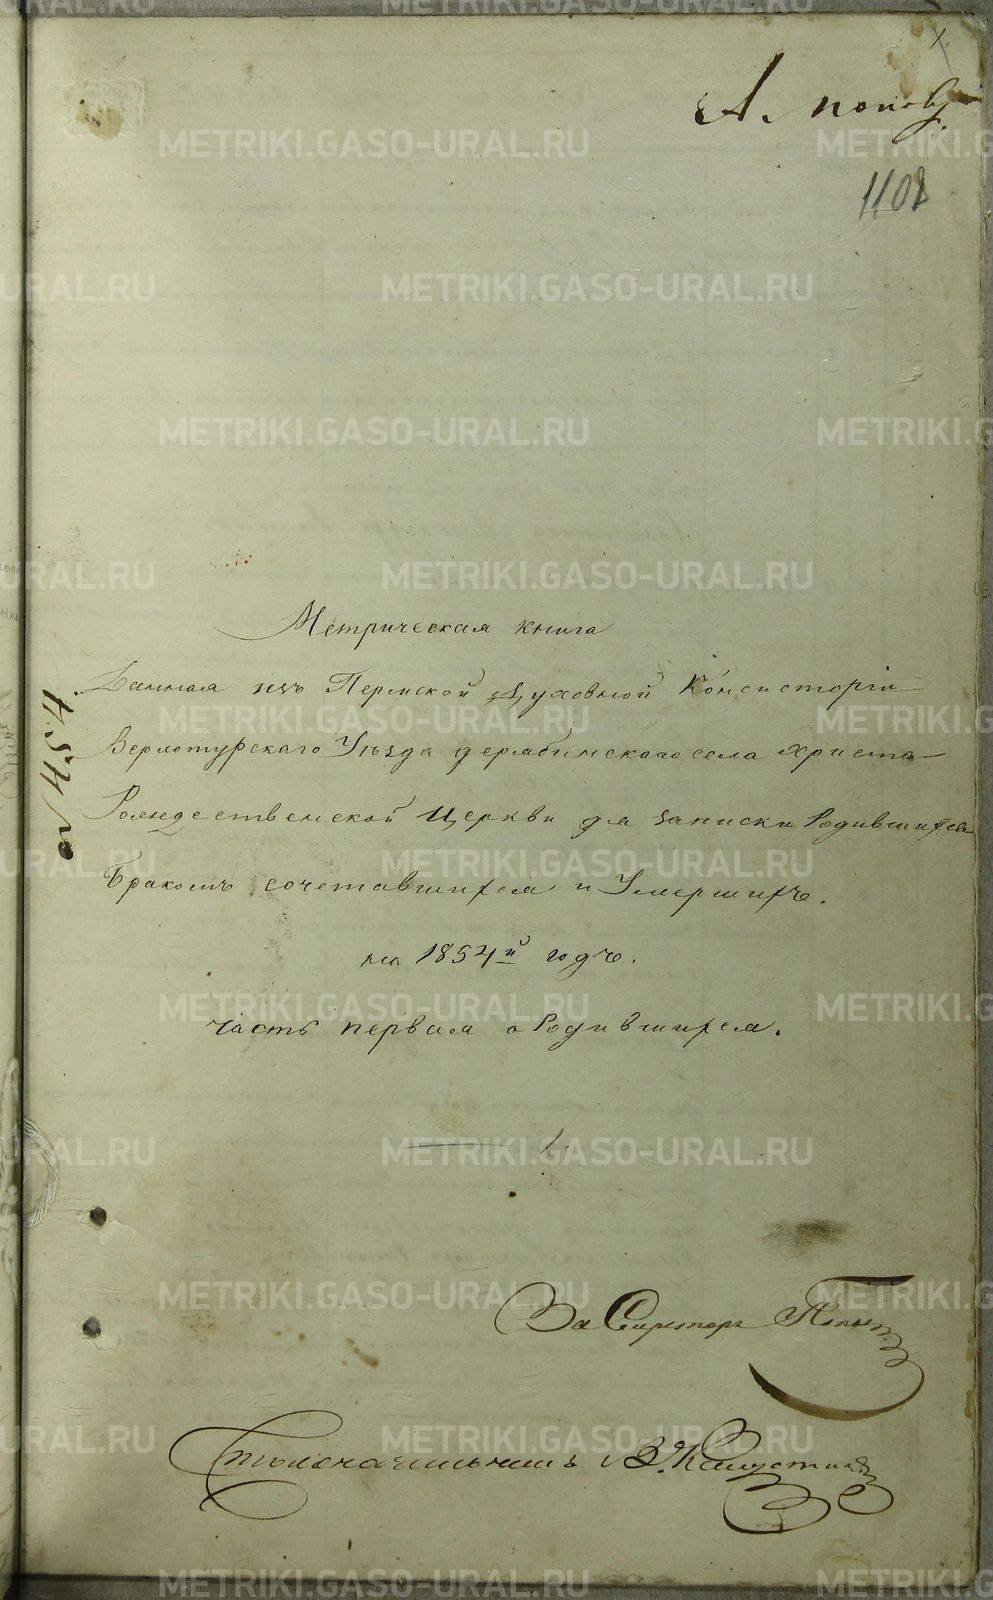 А. Попов
1108
Метрическая книга
Данная изъ Пермской Духовной Консисторіи
Верхотурскаго Уѣзда дерябинскаго села Христо-
Рождественской Церкви для записки Родившихся
Бракомъ сочетавшихся и Умершихъ.
на 1854й годъ.
часть первая о Родившихся.
За Секретаря
Столоначальникъ Капустинъ
METRIKI.GASO-URAL.RU